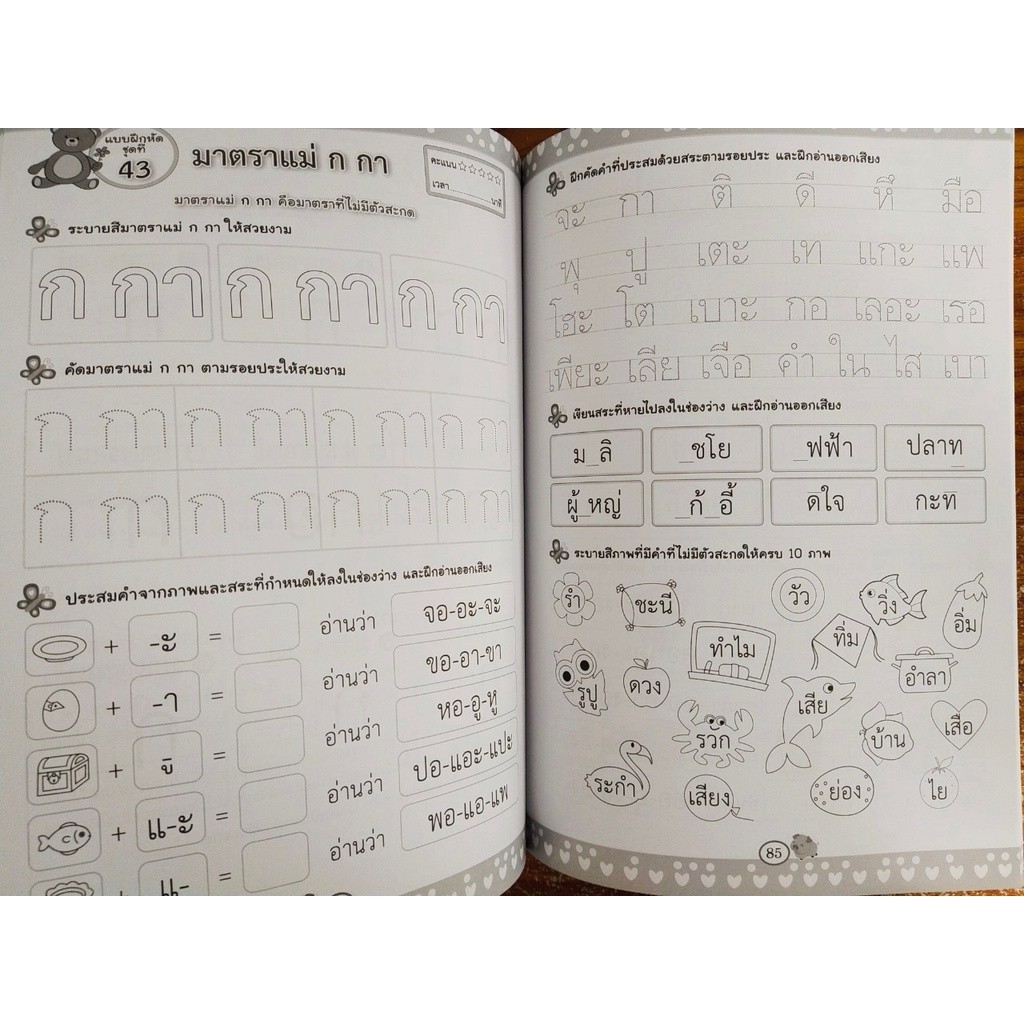 แบบฝึกหัด
ชุดที่
43
มาตราแม่ ก กา
คะแนน
เวลา..........นาที
มาตราแม่ ก กา คือมาตราที่ไม่มีตัวสะกด
ระบายสีมาตราแม่ ก กา ให้สวยงาม
ก กา ก กา ก กา
คัดมาตราแม่ ก กา ตามรอยประให้สวยงาม
ก กา ก กา ก กา ก กา
ก กา ก กา ก กา ก กา
ประสมคำจากภาพและสระที่กำหนดให้ลงในช่องว่าง และฝึกอ่านออกเสียง
+ -ะ = อ่านว่า จอ-อะ-จะ
+ -า = อ่านว่า ขอ-อา-ขา
+ = อ่านว่า หอ-อู-หู
+ แ-ะ = อ่านว่า ปอ-แอะ-แปะ
+ แ- = อ่านว่า พอ-แอ-แพ
ฝึกคัดคำที่ประสมด้วยสระตามรอยประ และฝึกอ่านออกเสียง
จะ กา ติ ดี หึ มือ
พุ ปู เตะ เท แกะ แพ
โฮะ โต เบาะ กอ เลอะ เรอ
เพียะ เลีย เจือ คำ ใน ไส เบา
เขียนสระที่หายไปลงในช่องว่าง และฝึกอ่านออกเสียง
ม_ลิ _ชโย _ฟฟ้า ปลาท_
ผู้_หญ่ _ก้_อี้ ดใจ กะท
ระบายสีภาพที่มีคำที่ไม่มีตัวสะกดให้ครบ 10 ภาพ
รำ ชะนี วัว วิ่ง อิ่ม
ทำไม ทิ่ม
รูปู ดวง อำลา
เสีย
รวก บ้าน เสือ
ระกำ เสียง ย่อง ไย
85